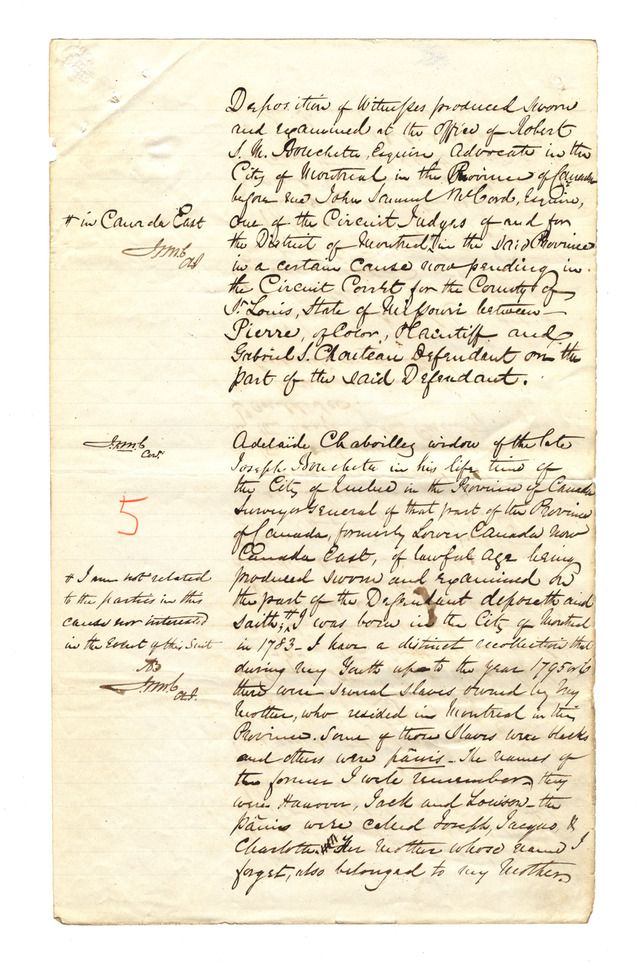 Deposition of Witnesses produced sworn
and examined at the office of Robert
S. M. Bouchette, Esquire, Advocate in the
City of Montreal in the Province of Canada
before me John Samuel McCord, Esquire,
# in Canada East
one of the Circuit Judges of and for
the District of Montreal # in the said Province
in a certain cause now pending in
the Circuit Court for the County of
St. Louis, State of Missouri between
Pierre, of Color, Plaintiff and
Gabriel S. Chouteau Defendant on the
part of the said Defendant.
Adelaïde Chaboillez widow of the late
Joseph Bouchette in his life time of
the City of Quebec in the Province of Canada
Surveyor General of that part of the Province
5
of Canada, formerly Lower Canada now
Canada East, of lawful age being
produced sworn and examined on
the part of the Defendant deposeth and
# I am not related
to the parties in this
cause nor interested
in the Event of this Suit
saith, # I was born in the City of Montreal
in 1783 - I have a distinct recollection that
during my Youth up to the year 1795 or 6
there were several slaves owned by my
Mother, who resided in Montreal in this
Province. Some of those Slaves were blacks
and others were pānis - The names of
the former I well remember, they
were Hanover, Jack and Louison - the
pānis were called Joseph, Jacques, &
Charlotte. Her Mother whose name I
forget, also belonged to my Mother,